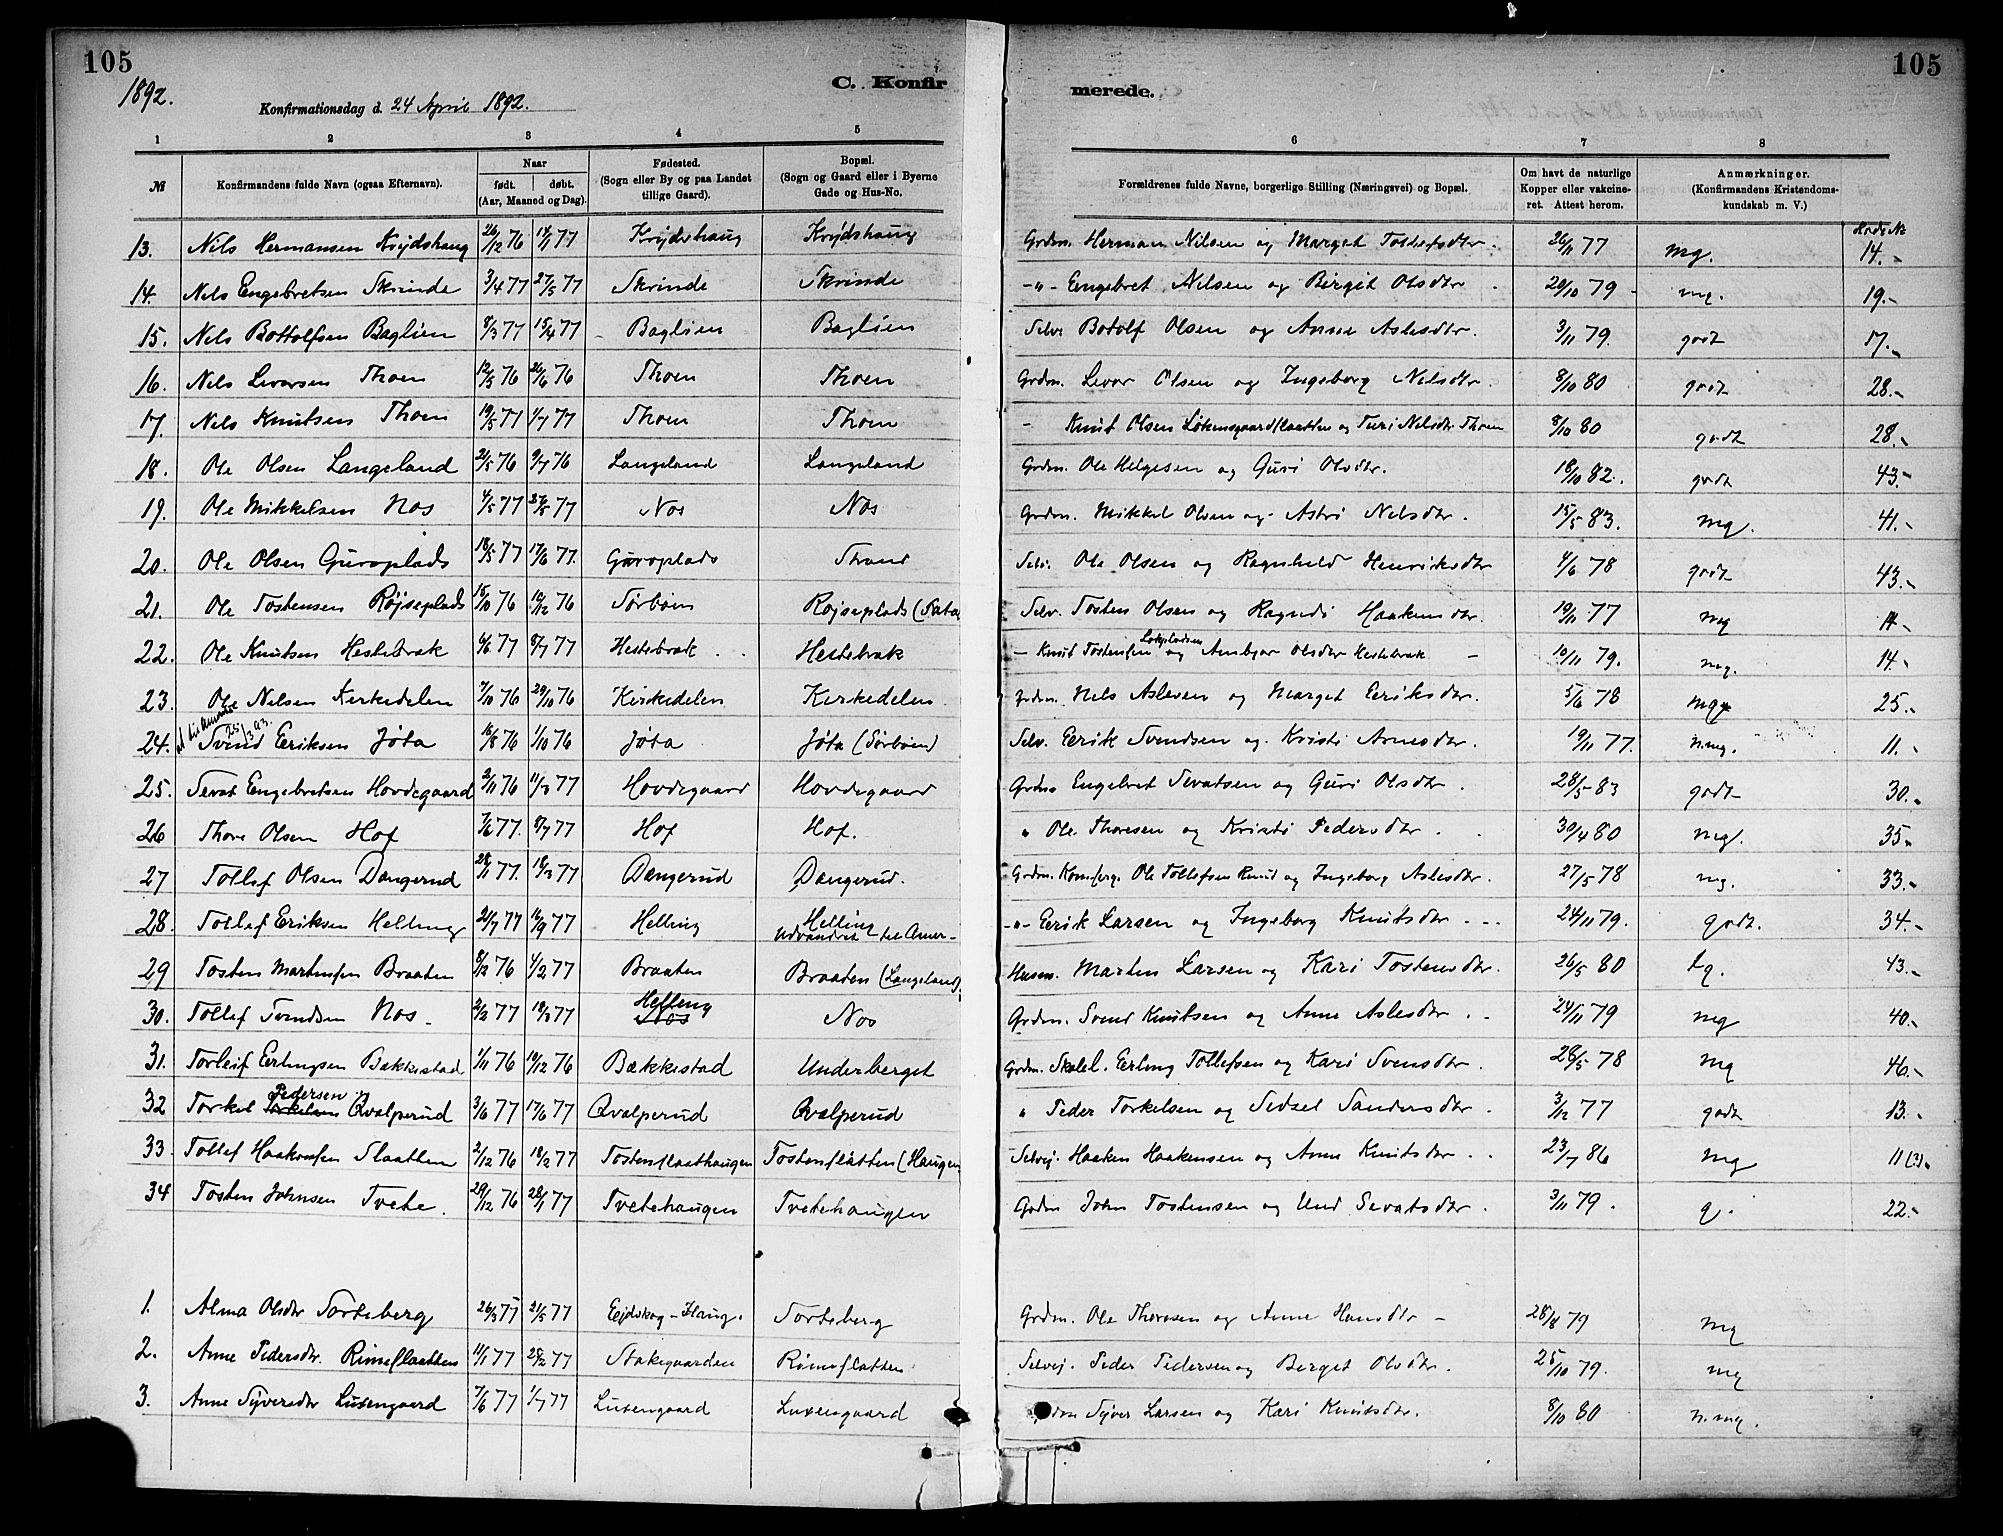 105
105
1892.
C. Konfir
merede.
Konfirmationsdag d. 24 April 1892.
1 2 3 4 5 6 7 8
№ Konfirmandens fulde Navn (ogsaa Efternavn). Naar født. døbt. (Aar, Maaned og Dag). Fødested. (Sogn eller By og paa Landet tillige Gaard). Bopæl. (Sogn og Gaard eller i Byerne Gade og Hus-No. Forældrenes fulde Navne, borgerlige Stilling (Næringsvei) og Bopæl. Om havt de naturlige Kopper eller vakcineret. Attest herom. Anmærkninger. (Konfirmandens Kristendomskundskab m. V.)
13. Nils Hermansen 26/12 76 Grdm. Herman Nilsen og Marget 26/11 77 mg. 14.-
14. Nils Engebretsen Skrinde 3/4 77 27/5 77 Skrinde Skrinde -"- Engebret Nilsen og Birgit Olsdtr 20/10 79 mg. 19.-
15. Nils Bottolfsen Baglien 8/3 77 15/4 77 Baglien Baglien Selv. Botolf Olsen og Anne Aslesdtr. 3/11 79. godt 17.-
16. Nils Levorsen Thoen 12/5 76 76 Thoen Thoen Grdm. Levor Olsen og Ingeborg Nilsdtr. 8/10 80 godt 28.-
17. Nils Knutsen Thoen 19/5 77 1/7 77 Thoen Thoen - Knut Olsen og Turi Nilsdtr Thoen 8/10 80 godt 28.-
18. Ole Olsen Langeland 21/5 76 9/7 76 Langeland Langeland Grdm. Ole Helgesen og Guri Olsdtr. 18/10 82. godt 43.-
19. Ole Mikkelsen Nos 4/5 77 27/5 77 Nos Nos Grdm. Mikkel Olsen og Astri Nelsdtr. 15/5 83. mg. 41.-
20. Ole Olsen Guroplads 18/5 77 17/6 77. Guroplads Selv. Ole Olsen og Ragnhild Henriksdtr 4/6 78 godt 43.-
21. Ole Tostensen Røjseplads 15/10 76 10/12 76 Sørbøen Røjseplads Selv. Tosten Olsen og Ragndi Haakensdtr. 19/11 77 mg
22. Ole Knutsen Hestebræk 4/6 77 8/7 77 Hestebræk Hestebræk - Knut Tostensen og Ambjør Olsdtr Hestebræk 19/11 79. mg. 14.-
23. Ole Nilsen Kirkedelen 7/10 76 29/10 76 Kirkedelen Kirkedelen Grdm. Nils Aslesen og Marget Eriksdtr. 5/6 78 25.-
24. Svend Eriksen Jøta 16/8 76 1/10 76 Jøta Jøta (Sørbøen) Selv. Eerik Svendsen og Kristi Arnesdtr. 19/11 77. n.mg. 11.-
25. Sevat Engebretsen Hovdegaard 2/11 76 11/3 77 Hovdegaard Hovdegaard Grdm Engebret Sevatsen og Guri Olsdtr. 28/5 83 godt 30.-
26 Thore Olsen Hof 7/6 77. 8/7 77 Hof Hof. " Ole Thoresen og Kristi Pedersdtr. 30/4 80 mg. 35.-
27 Tollef Olsen Dangerud 28/1 77. 18/3 77 Dangerud Dangerud. Grdm. Ole Tollefsen og Ingeborg Aslesdtr. 27/5 78 mg. 33.-
28. Tollef Eriksen Helling 21/7 77 16/9 77 Helling Helling Udvandret til Amer- -"- Eerik Larsen og Ingeborg Knutsdtr. 24/11 79. godt. 34.-
29 Tosten Martensen Braaten 8/12 76 4/2 77 Braaten Braaten (Langeland). Husm. Marten Larsen og Kari Tostensdtr. 26/5 80 tg. 43.-
30. Tollef Svendsen Nos 2/2 77 18/3 77 Helling Nos Nos Grdm. Svend Knutsen og Anne Aslesdtr. 24/11 79 mg 40.-
31. Torleif Eerlingsen Bækkestad 1/11 76 10/12 76 Bækkestad Underberget Grdm. Skolel. Eerling Tollefsen og Kari Svensdtr. 28/5 78 mg 46.-
32 Torkel Pedersen Qvalperud 3/6 77 17/6 77 Qvalperud Qvalperud " Peder Torkelsen og Sidsel Sandersdtr. 3/12 77 godt 13.-
33. Tollef Haakensen Slaatten 2/12 76 18/2 77 Tostenslaathaugen Tostenslåtten (Haugen) Selvej. Haaken Haakensen og Anne Knutsdtr. 23/7 86 mg 11
34 Tosten Johnsen Tvete. 29/12 76 28/1 77 Tvetehaugen Tvetehaugen Grdm John Tostensen og Und Sevatsdtr. 3/11 79. g. 22.-
1. Alma Olsdtr Torteberg 26/3 77 21/5 77 Eidskog - Haug. Torteberg Grdm. Ole Thoresen og Anne Hansdtr - 28/8 79 mg
2. Anne Pedersdtr. Rimeslaatten 14/1 77 25/2 77 Stakegaarden Rimeslatten Selvej. Peder Pedersen og Berget Olsdtr. 25/10 79. mg
3. Anne Syversdtr Lusengaard 7/6 77 1/7 77 Lusengaard Lusengaard Syver Larsen og Kari Knutsdtr. 8/10 80 n.mg.